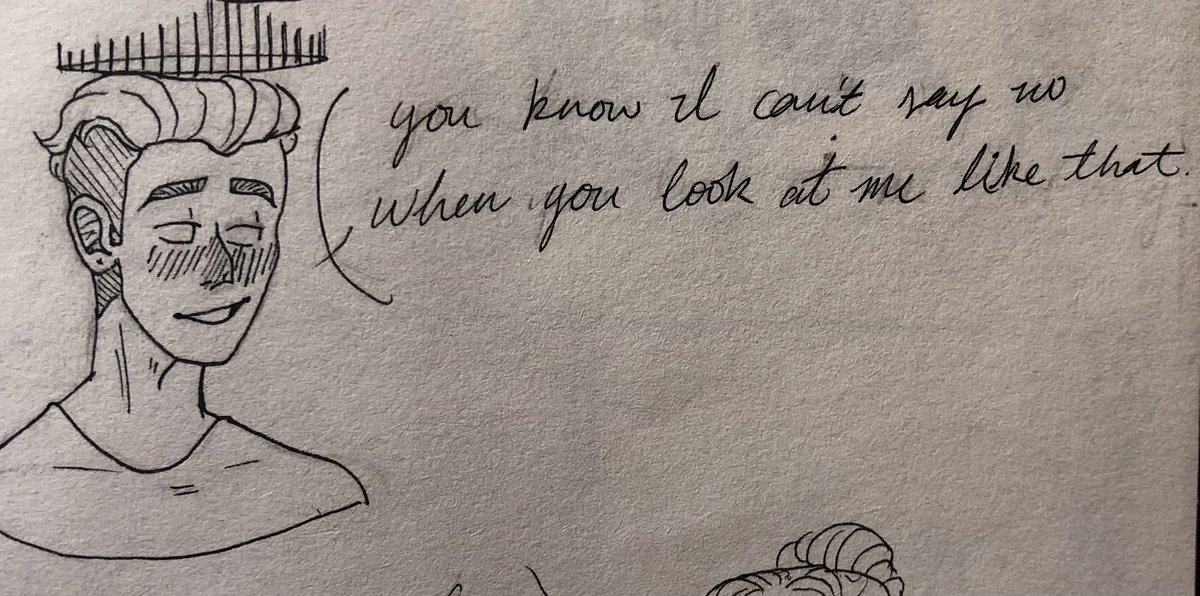 you know I can't say no
when you look at me like that.